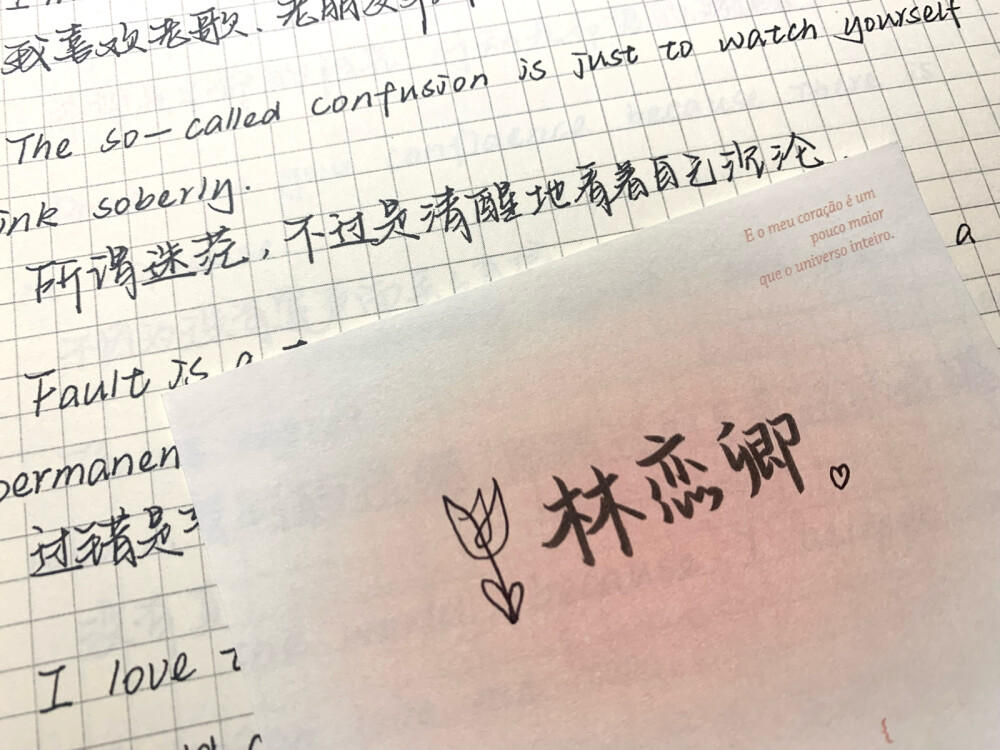 我喜欢老歌、老朋友
The so-called confusion is just to watch yourself
ink soberly.
所谓迷茫，不过是清醒地看着自己沉沦.
a
Fault is a
permanen
过错是
I love
E o meu coração é um
pouco maior
que o universo inteiro.
林恋卿
{